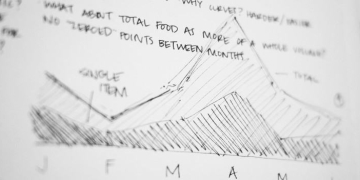 WHY CURVEY? HARDER/EASIER
WHAT ABOUT TOTAL FOOD AS MORE OF A WHOLE VOLUME?
NO ZEROED POINTS BETWEEN MONTHS.
SINGLE
ITEM
TOTAL
J F M A M